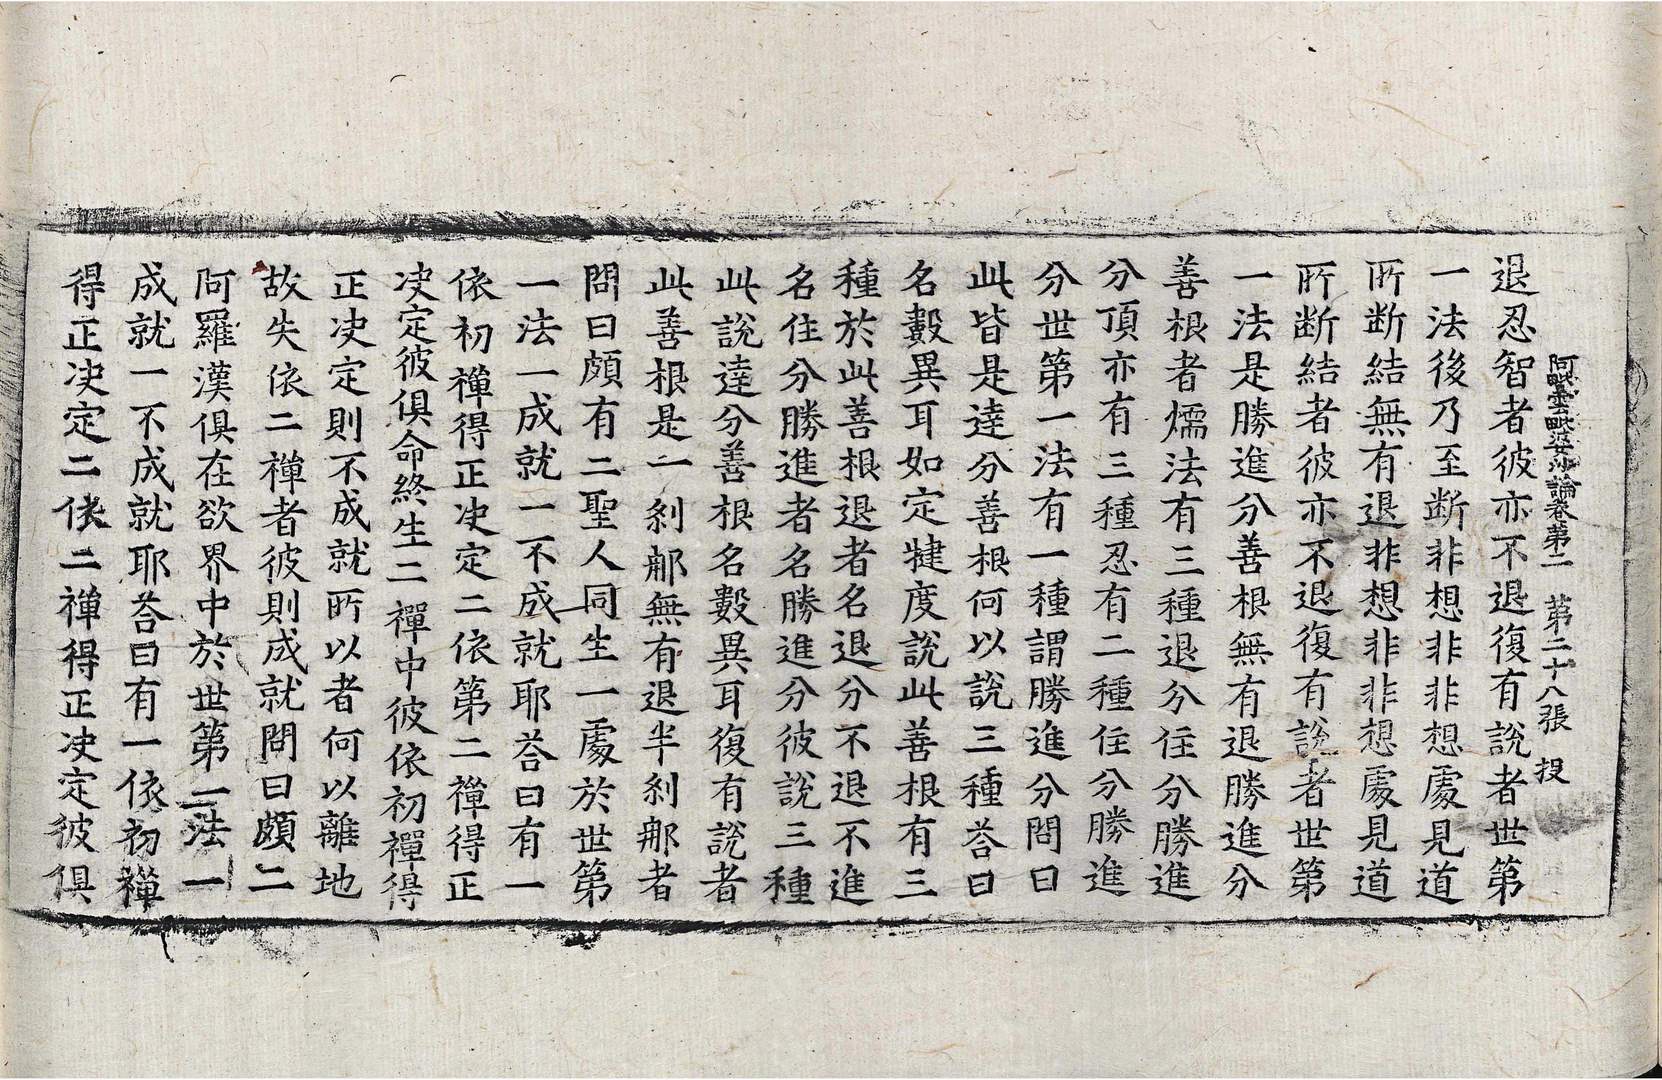 阿毗曇毗婆沙論卷第二 第二十八張 投
退忍智者彼亦不退復有說者世第
一法後乃至断非想非非想處見道
所断結無有退非想非非想處見道
所断結者彼亦不退復有說者世第
一法是勝進分善根無有退勝進分
善根者煗法有三種退分住分勝進
分頂亦有三種忍有二種住分勝進
分世第一法有一種謂勝進分問曰
此皆是達分善根何以說三種荅曰
名數異耳如定揵度說此善根有三
種於此善根退者名退分不退不進
名住分勝進者名勝進分彼說三種
此說達分善根名數異耳復有說者
此善根是一剎那無有退半剎那者
問曰頗有二聖人同生一處於世第
一法一成就一不成就耶荅曰有一
依初禪得正决定二依第二禪得正
决定彼俱命終生二禪中彼依初禪得
正决定則不成就所以者何以離地
故失依二禪者彼則成就問曰頗二
阿羅漢俱在欲界中於世第一法一
成就一不成就耶荅曰有一依初禪
得正决定二依二禪得正决定彼俱